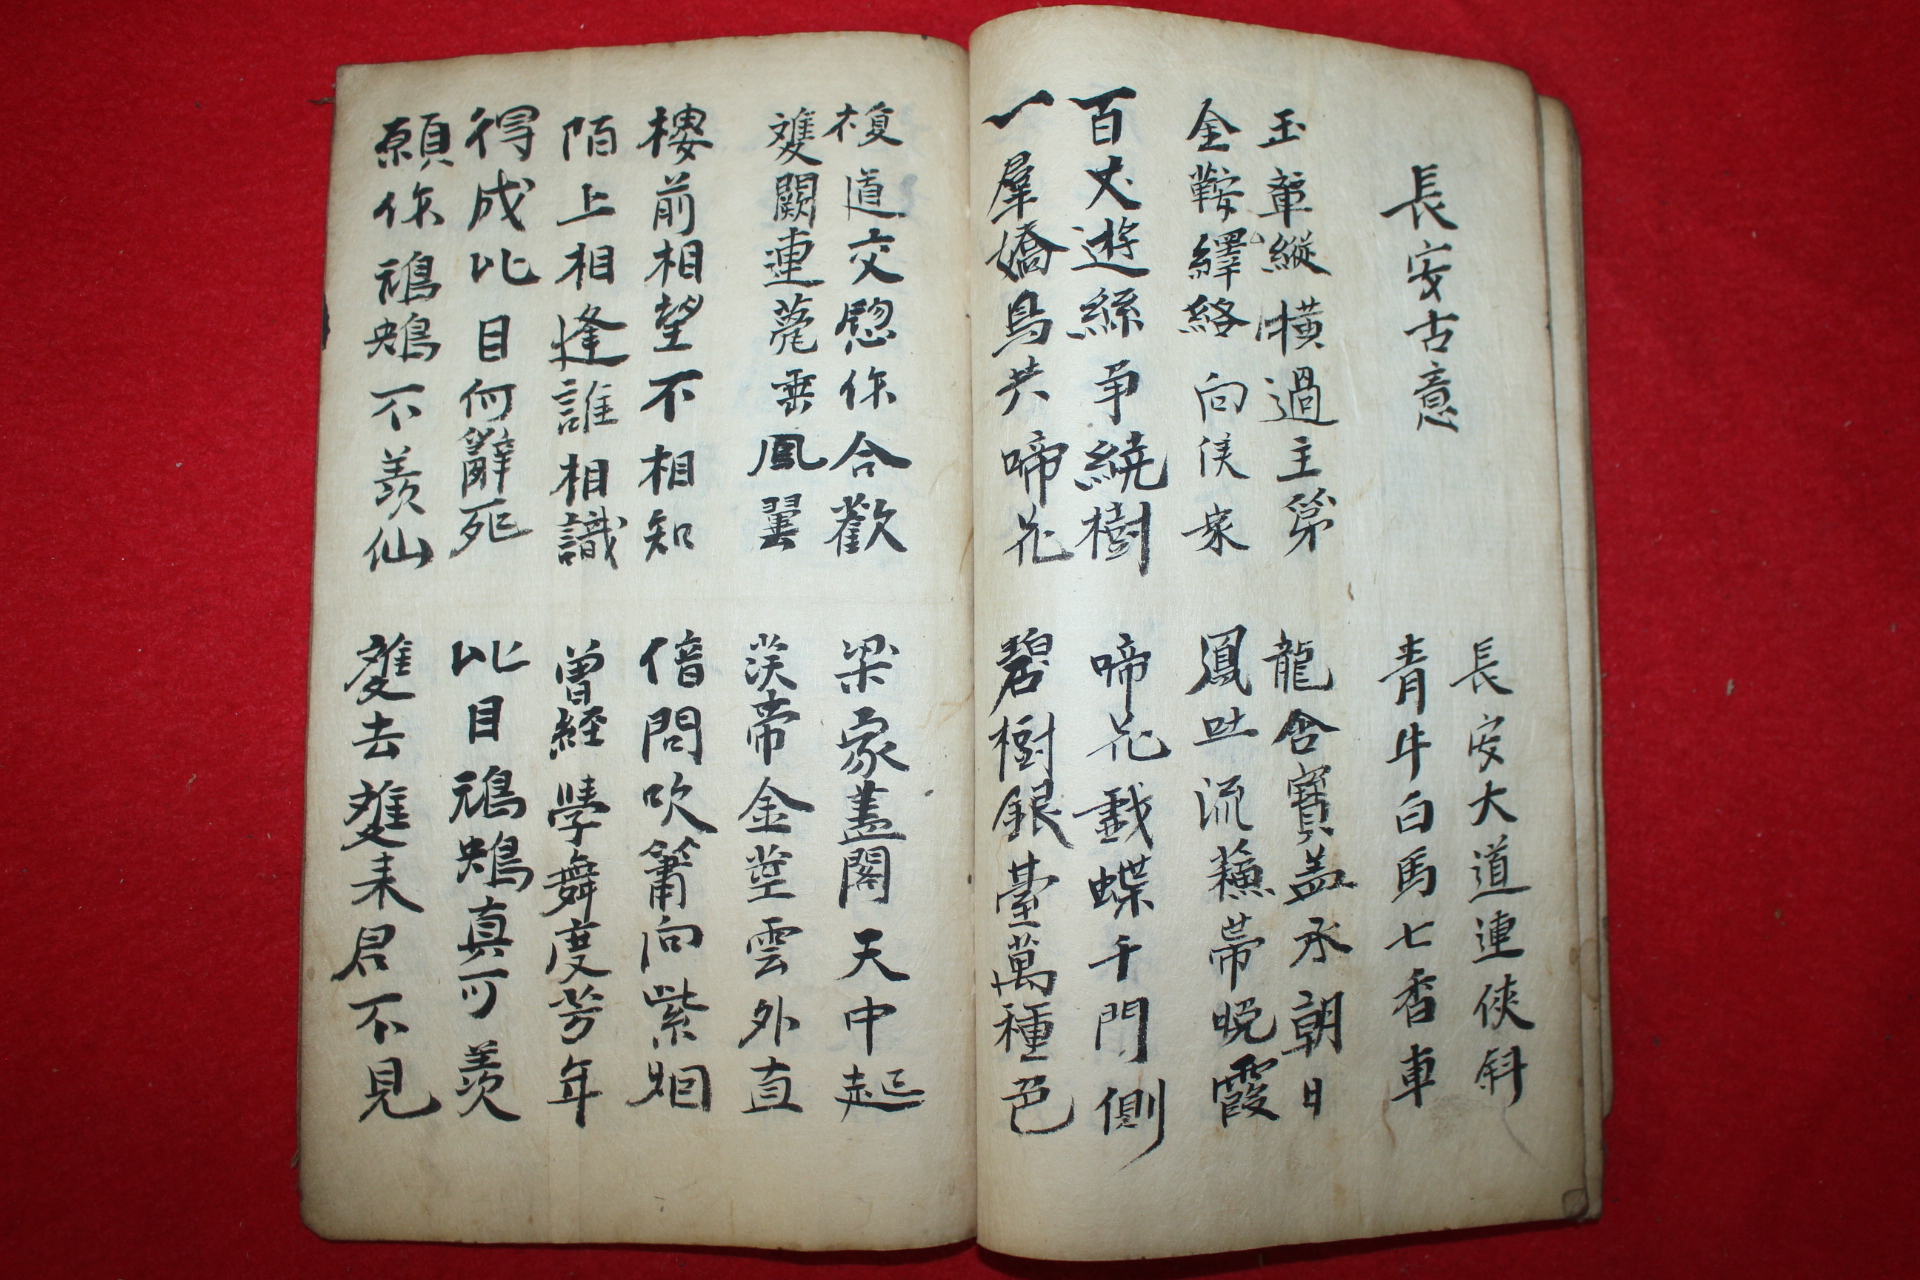 長安古意
長安大道連俠斜
青牛白馬七香車
玉輦縱橫過主第
金鞍繹絡向侯家
龍含寶盖承朝日
鳳吐流蘓帶晚霞
百丈遊絲爭繞樹
一羣嬌鳥共啼花
啼花戱蝶千門側
碧樹銀臺萬種色
複道交窓作合歡
雙闕連甍垂鳳翼
梁家盖閣天中起
漢帝金莖雲外直
樓前相望不相知
陌上相逢誰相識
借問吹簫向紫烟
曾經學舞度芳年
得成比目何辭死
願作鴛鴦不羨仙
比目鴛鴦真可羨
雙去雙来君不見